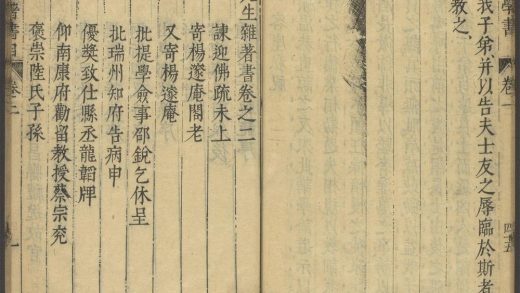 學書 卷一 四五
我子弟并以告夫士友之辱臨於斯者
教之
生雜著書卷之二
諫迎佛疏未上
寄楊邃庵閣老
又寄楊邃庵
批提學僉事邵銳乞休呈
批瑞州知府告病申
優獎致仕縣丞龍韜牌
仰南康府勸留教授蔡宗兗
褒崇陸氏子孫
著書目 卷二 一